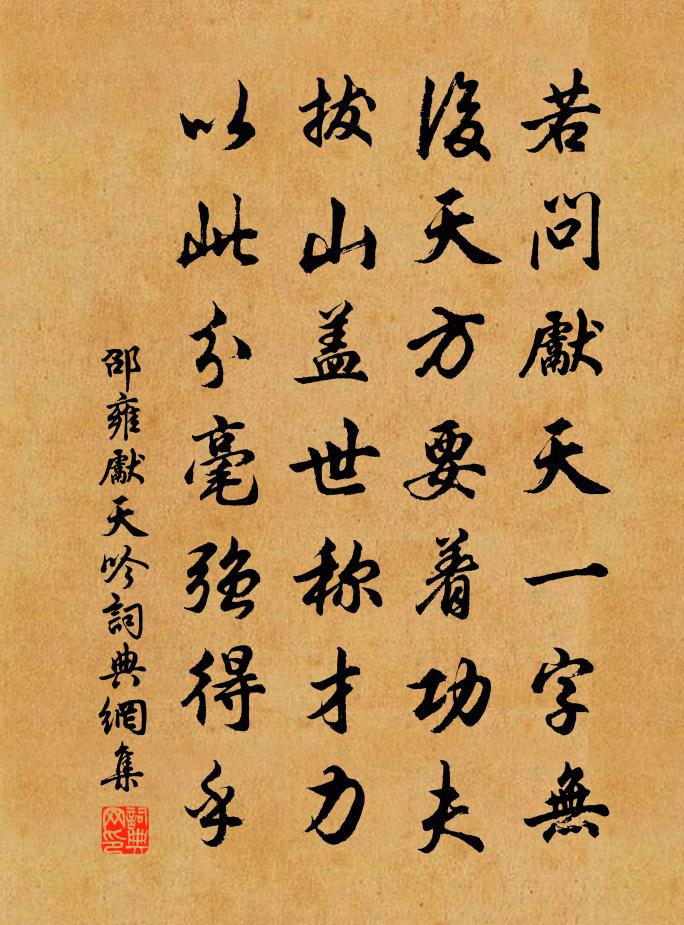 若問獻天一字無
後天方要着功夫
拔山盖世称才力
以此分毫強得乎
邵雍獻天吟詞典網集
詞典网印